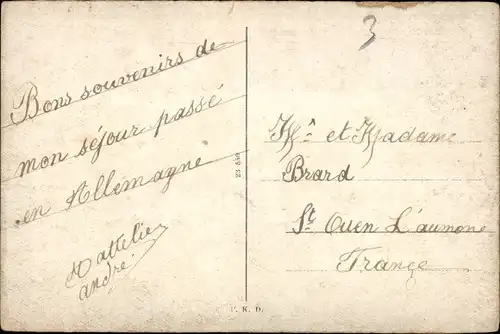 3
Bons souvenirs de
mon séjour passé
en Allemagne
andré
Mr et Madame
Brard
St Ouen L'aumone
France
P. K. D.